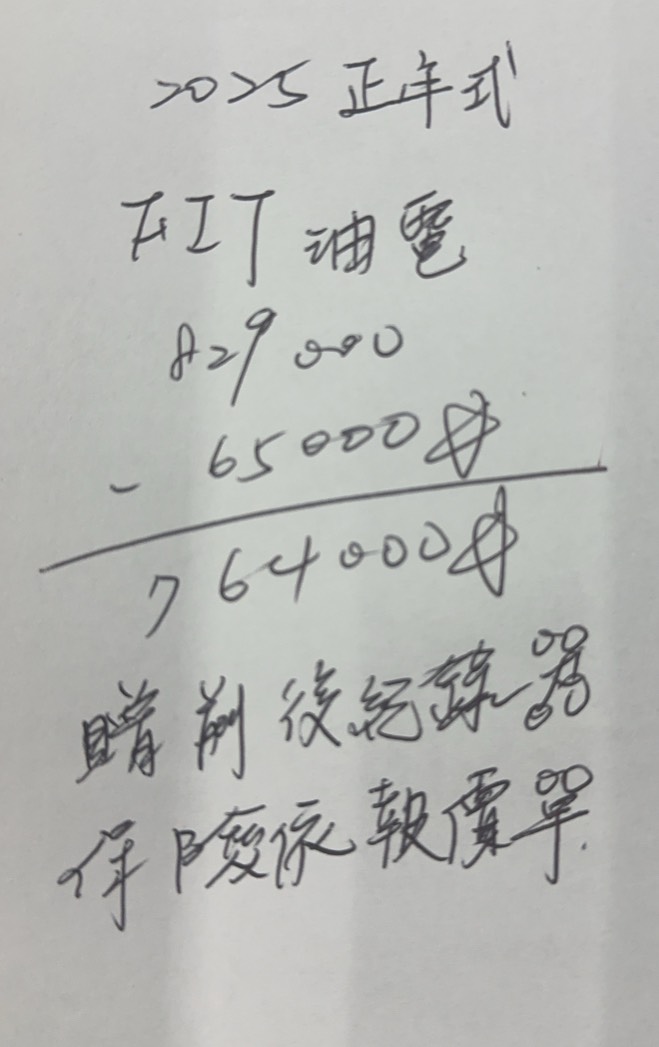 2025 正年式
FIT 油電
829000
- 65000
764000
贈前後紀錄器
保險依報價單.